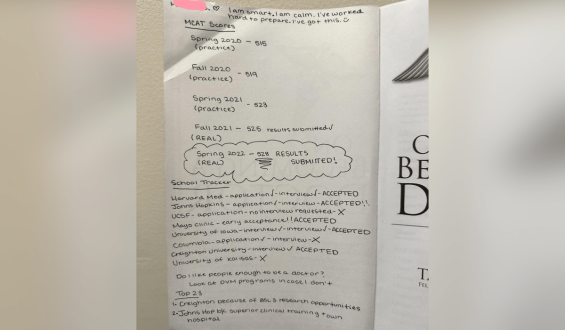 I am smart. I am calm. I've worked
hard to prepare. I've got this. ☺
MCAT Scores
Spring 2020 - 515
(practice)
Fall 2020 - 519
(practice)
Spring 2021 - 523
(practice)
Fall 2021 - 525 results submitted √
(REAL)
Spring 2022 - 528 RESULTS
(REAL) SUBMITTED!
School Tracker
Harvard Med - application √ - interview √ - ACCEPTED
Johns Hopkins - application √ - interview - ACCEPTED!!
UCSF - application - no interview requested - X
Mayo Clinic - early acceptance!! ACCEPTED
University of Iowa - interview √ - interview √ - ACCEPTED
Columbia - application √ - interview - X
Creighton University - interview √ ACCEPTED
University of Kansas - X
Do I like people enough to be a doctor?
Look at DVM programs in case I don't
Top 2
1. Creighton because of research opportunities
2. Johns Hop bc superior clinical training + own
hospital
BE
D